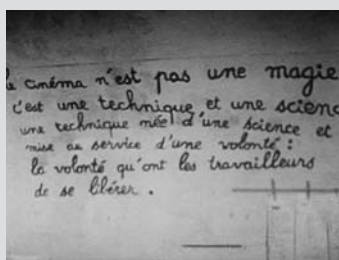 le cinéma n'est pas une magie
c'est une technique et une science
une technique née d'une science et
mise au service d'une volonté :
la volonté qu'ont les travailleurs
de se libérer .